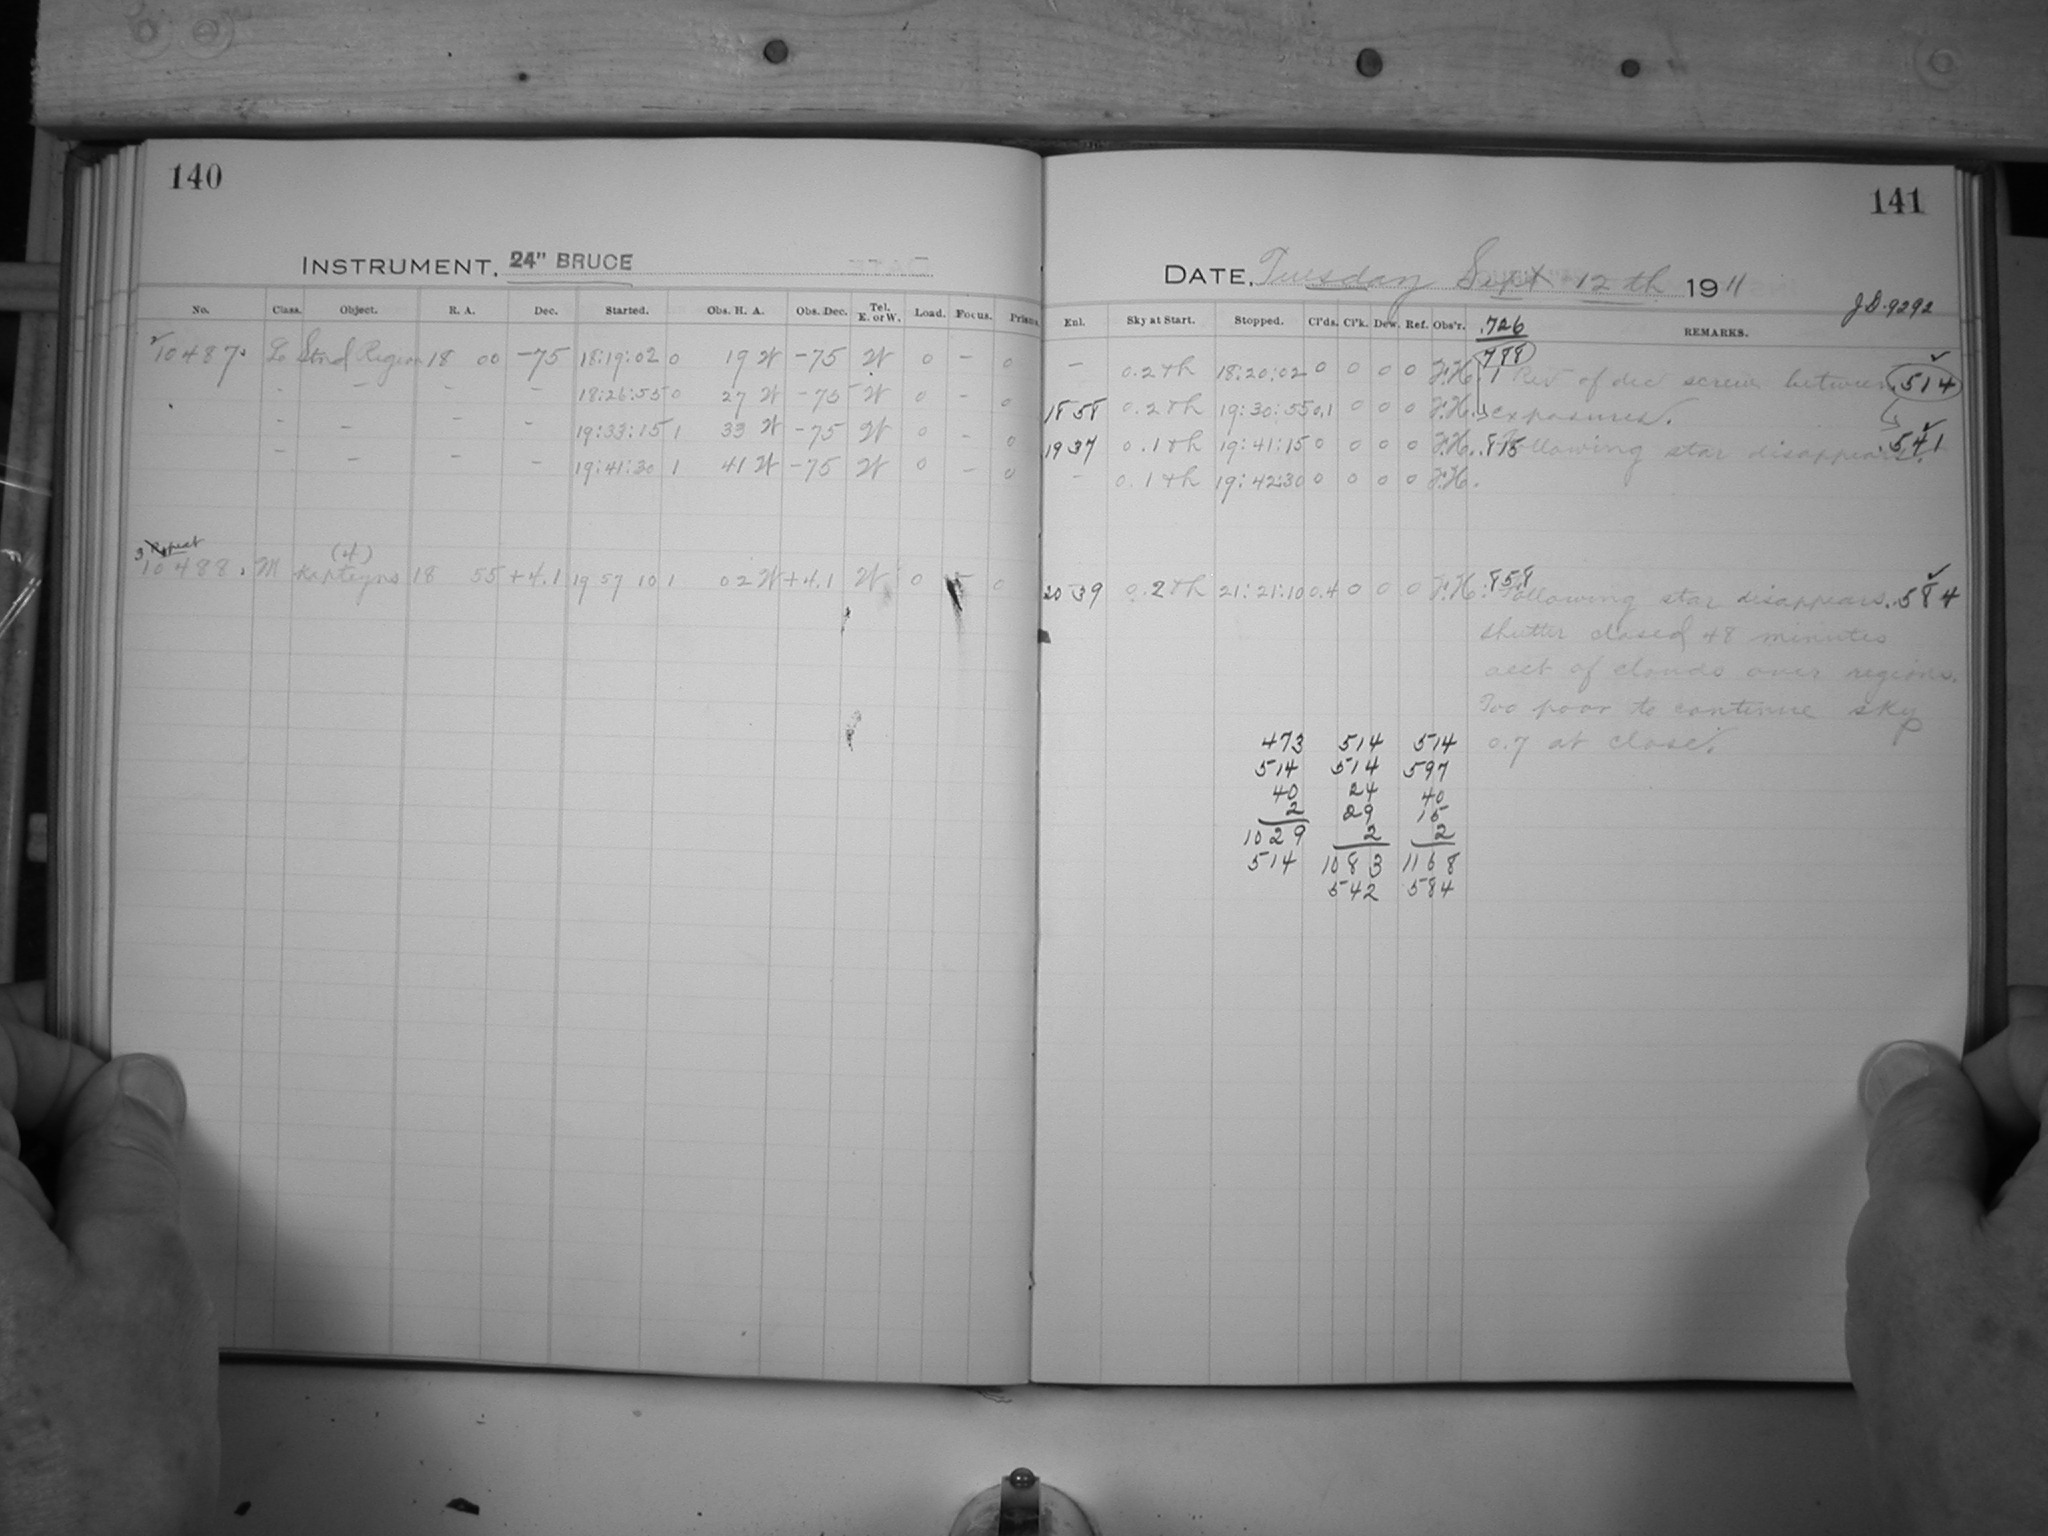 140
INSTRUMENT, 24" BRUCE
No. Class. Object. R. A. Dec. Started. Obs. H. A. Obs. Dec. Tel. E. or W. Load. Focus. Prisms
10487 Stnd Region 18 00 -75 18:19:02 0 19 W -75 W 0 - 0
- - - - 18:26:55 0 27 W -75 W 0 - 0
- - - - 19:33:15 1 33 W -75 W 0 - 0
- - - - 19:41:30 1 41 W -75 W 0 - 0
3 Repeat (4)
10488. M Kapteyns 18 55 +4.1 19 57 10 1 02 W +4.1 W 0 - 0
141
DATE, Tuesday Sept 12th 1911
J.D. 9292
Enl. Sky at Start. Stopped. Cl'ds. Cl'k. Dew. Ref. Obs'r. .726 REMARKS.
788
- 0.2 th 18:20:02 0 0 0 0 F.H. 1 Rev of dec screw between 514
18 58 0.2 th 19:30:55 0.1 0 0 0 F.H. exposures.
19 37 0.1 th 19:41:15 0 0 0 0 F.H. .815 Following star disappears. .541
- 0.1 th 19:42:30 0 0 0 0 F.H.
.858
20 39 0.2 th 21:21:10 0.4 0 0 0 F.H. Following star disappears. .584
Shutter closed 48 minutes
acct of clouds over regions.
Too poor to continue sky
0.7 at close.
473 514 514
514 514 597
40 24 40
2 29 15
1029 2 2
514 1083 1168
542 584